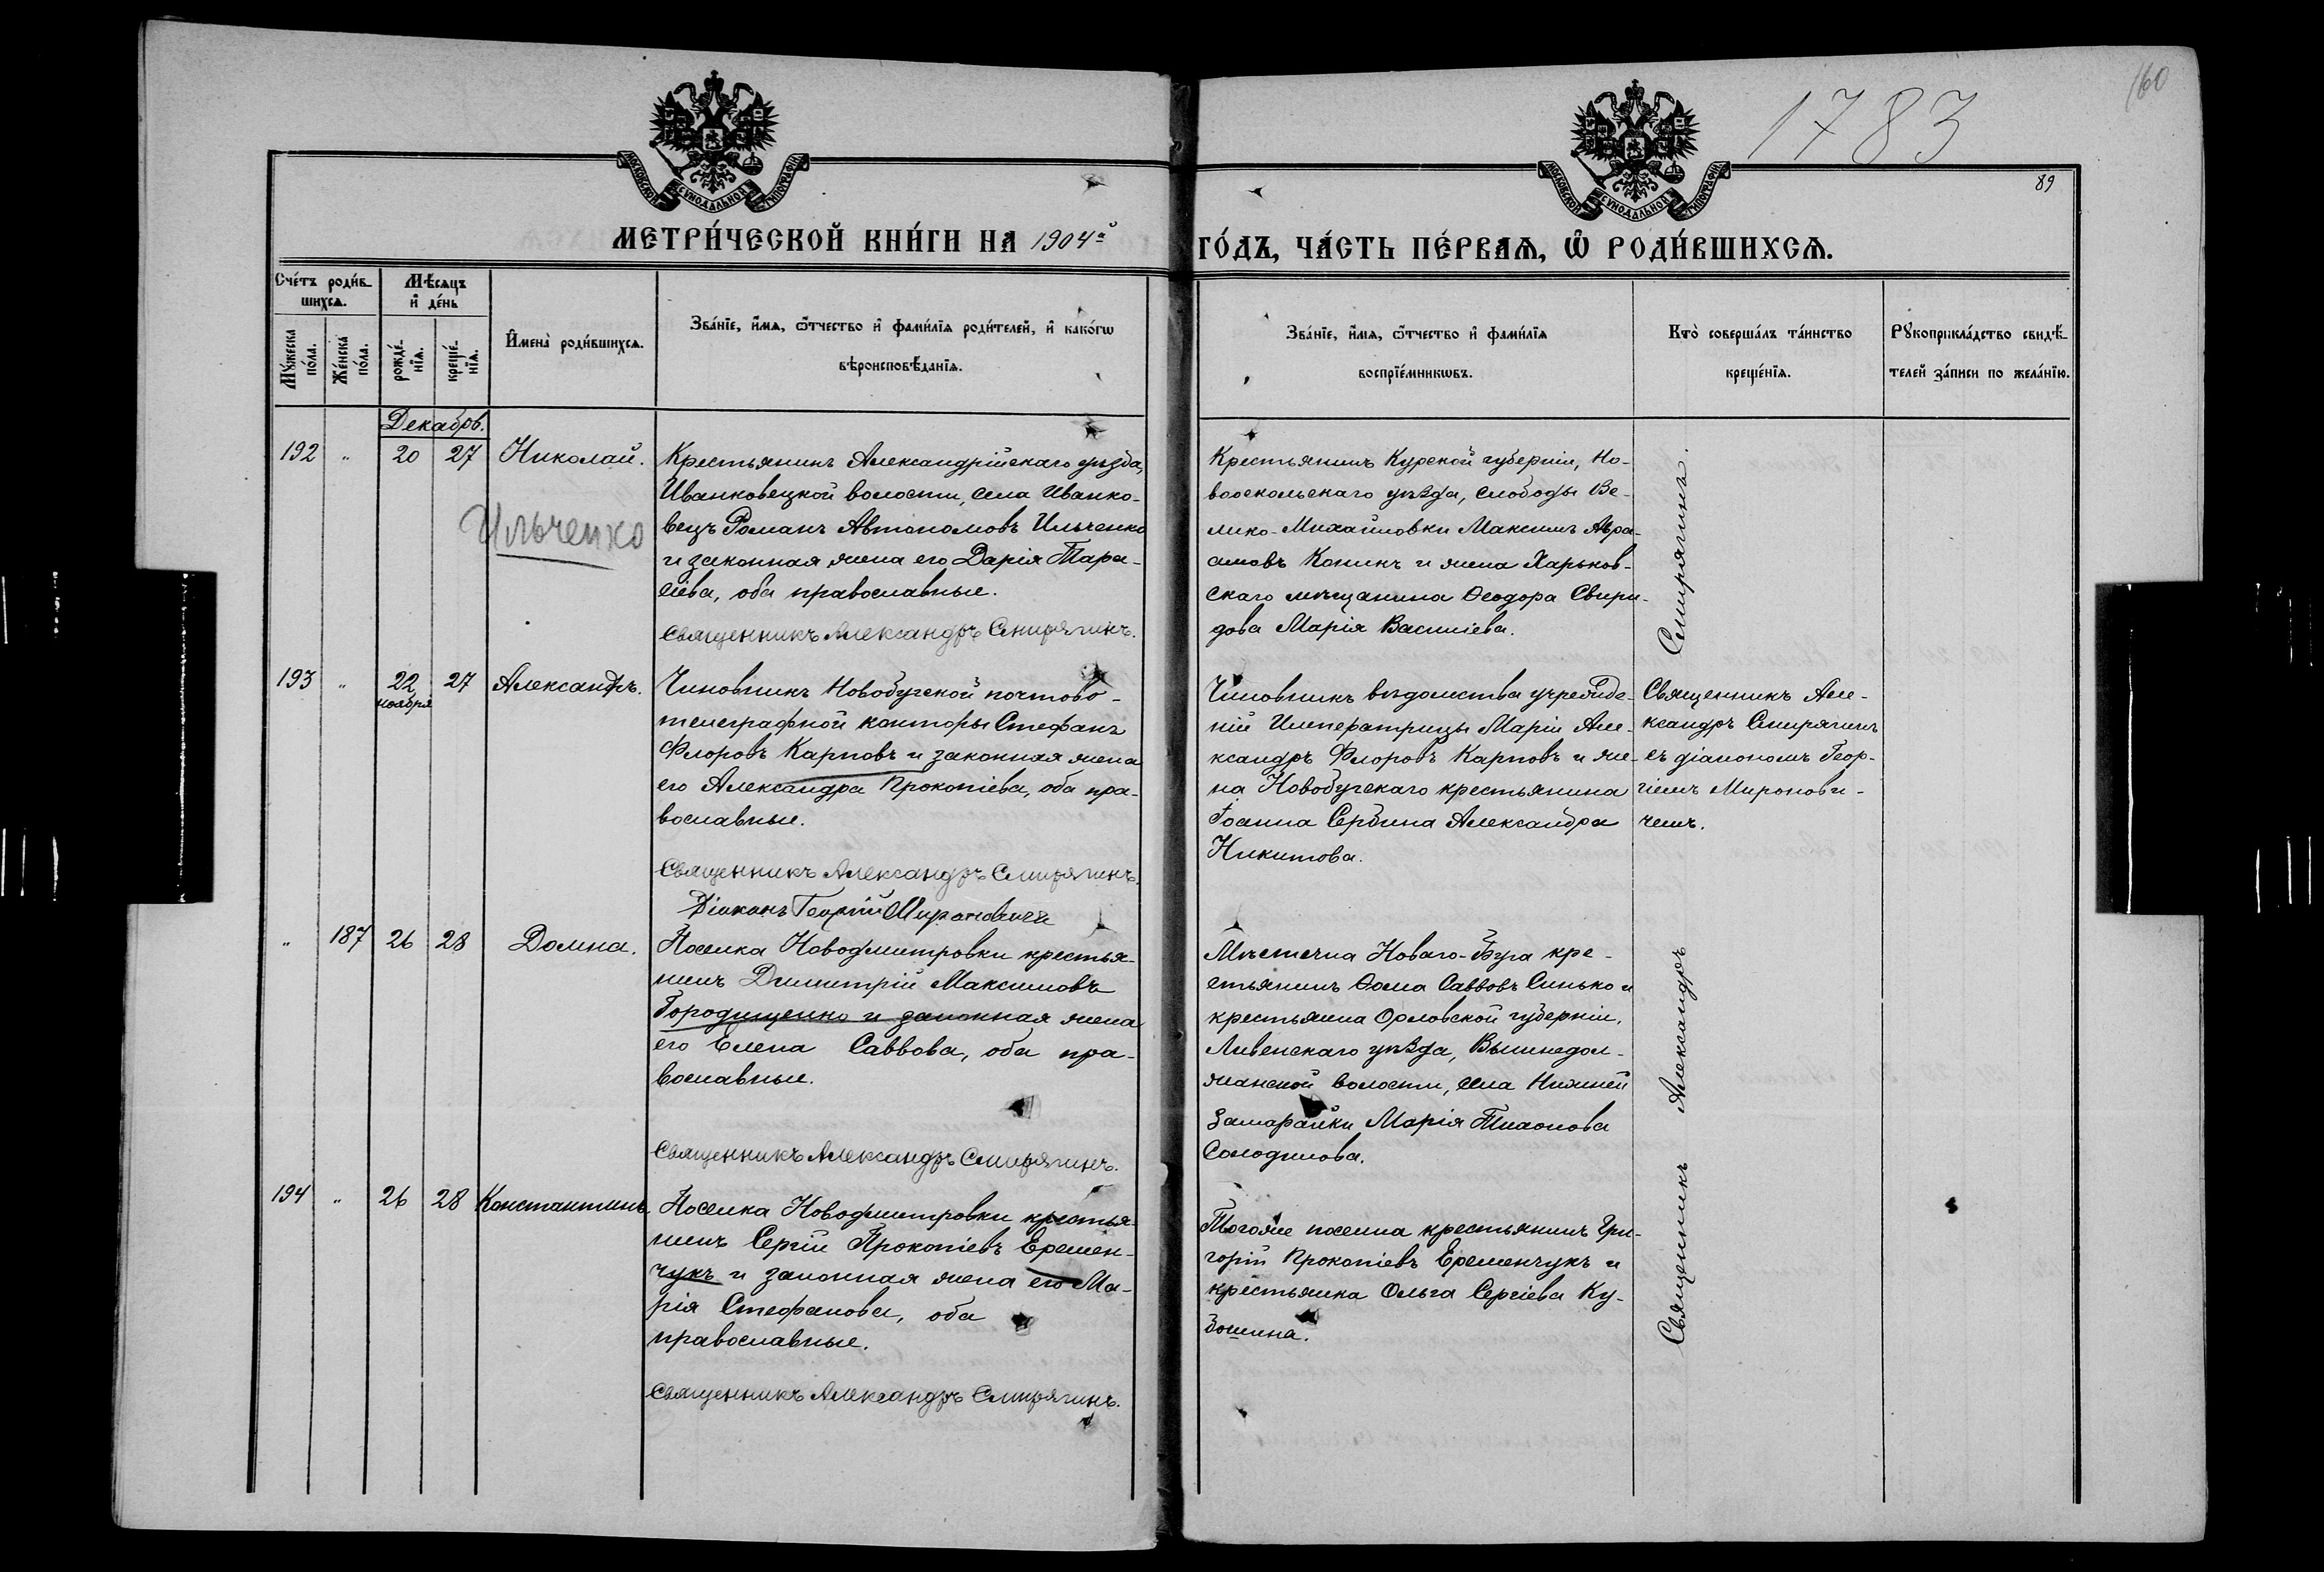 160
1783
89
МОСКОВСКОЙ СѴНОДАЛЬНОЙ ТИПОГРАФІИ
МОСКОВСКОЙ СѴНОДАЛЬНОЙ ТИПОГРАФІИ
МЕТРИ́ЧЕСКОЙ КНИ́ГИ НА 1904й
ГО́ДЪ, ЧА́СТЬ ПЕ́РВАѦ, Ѿ РОДИ́ВШИХСѦ.
Сче́тъ роди́в-
шихсѧ.
Мѣ́сѧцъ
и҆ де́нь
Мꙋ́жеска
по́ла.
Же́нска
по́ла.
рожде́-
нїѧ.
креще́-
нїѧ.
И҆мена̀ роди́вшихсѧ.
Зва́нїе, и҆́мѧ, ѻ҆́тчество и҆ фами́лїѧ роди́телей, и҆ како́гѡ
вѣроисповѣ́данїѧ.
Зва́нїе, и҆́мѧ, ѻ҆́тчество и҆ фами́лїѧ
воспрїе́мникѡвъ.
Кто̀ соверша́лъ та́инство
креще́нїѧ.
Рꙋкоприкла́дство свидѣ́-
телей за́писи по жела́нїю.
Декабрь.
192 " 20 27 Николай.
Ильченко
Крестьянинъ Александрійскаго уѣзда,
Иванковецкой волости, села Иванко-
вецъ Романъ Автономовъ Ильченко
и законная жена его Дарія Тара-
сіева, оба православные.
Священникъ Александръ Смирягинъ.
Крестьянинъ Курской губерніи, Но-
вооскольскаго уѣзда, слободы Ве-
лико-Михайловки Максимъ Авра-
амовъ Конинъ и жена Харьков-
скаго мѣщанина Ѳеодора Свири-
дова Марія Василіева.
193 " 22 27 Александръ.
ноября
Чиновникъ Новобугской почтово-
телеграфной конторы Стефанъ
Флоровъ Карповъ и законная жена
его Александра Прокопіева, оба пра-
вославные.
Священникъ Александръ Смирягинъ.
Діаконъ Георгій Мироновичъ
Чиновникъ вѣдомства учрежде-
ній Императрицы Маріи Але-
ксандръ Флоровъ Карповъ и же-
на Новобугскаго крестьянина
Іоанна Сербина Александра
Никитова.
Священникъ Але-
ксандръ Смирягинъ
съ діакономъ Геор-
гіемъ Миронови-
чемъ.
" 187 26 28 Домна.
Поселка Новодмитровки крестья-
нинъ Димитрій Максимовъ
Городищенко и законная жена
его Елена Саввова, оба пра-
вославные.
Священникъ Александръ Смирягинъ.
Мѣстечка Новаго-Буга кре-
стьянинъ Ѳома Саввовъ Синько и
крестьянка Орловской губерніи,
Ливенскаго уѣзда, Вышнедол-
жанской волости, села Нижней
Замарайки Марія Тихонова
Солодилова.
194 " 26 28 Константинъ
Поселка Новодмитровки крестья-
нинъ Сергій Прокопіевъ Еремен-
чукъ и законная жена его Ма-
рія Стефанова, оба
православные.
Священникъ Александръ Смирягинъ.
Тогоже поселка крестьянинъ Гри-
горій Прокопіевъ Еременчукъ и
крестьянка Ольга Сергіева Ку-
Священникъ Александръ Смирягинъ.